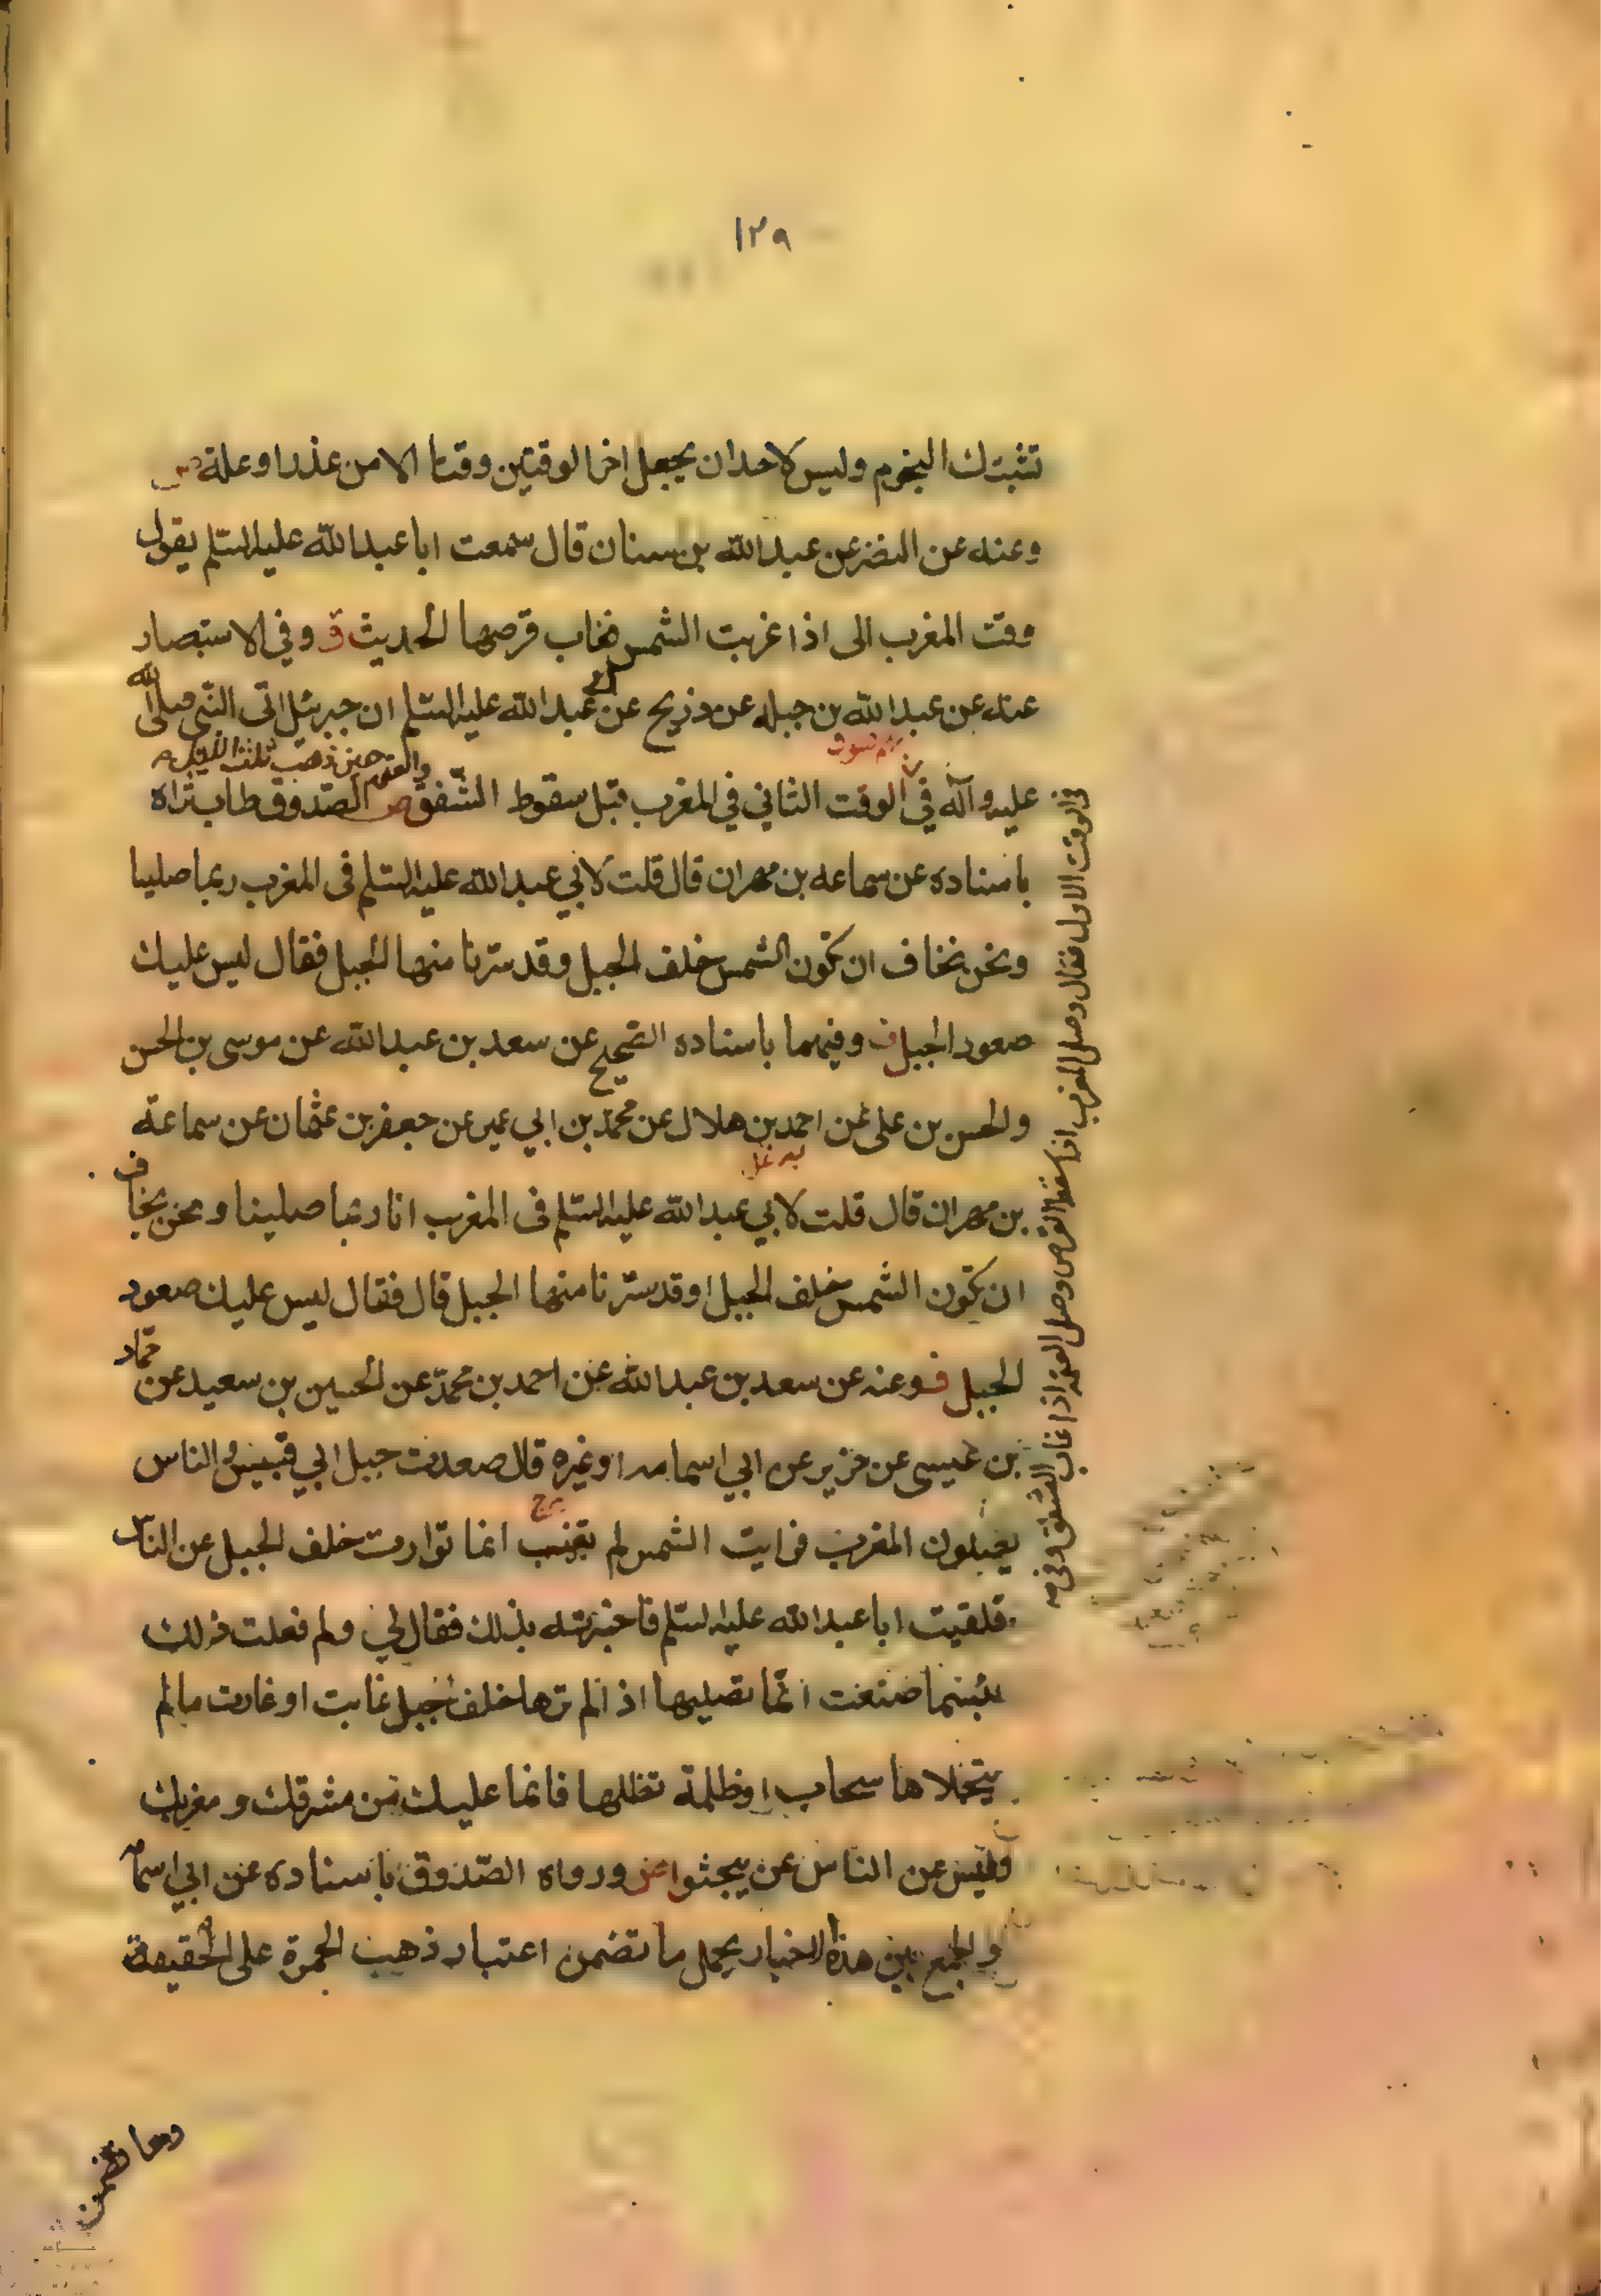 ١٢٩
تشتبك النجوم وليس لاحد ان يجعل اخر الوقتين وقتا الا من عذر او علة
وعنه عن النضر عن عبد الله بن سنان قال سمعت ابا عبد الله عليه السلم يقول
وقت المغرب الى اذا غربت الشمس فغاب قرصها الحديث ق وفي الاستبصار
عنه عن عبد الله بن جبله عن ذريح عن ابي عبد الله عليه السلم ان جبرئيل اتى النبي صلى الله
والعتمة حين ذهب ثلث الليل
عليه وآله في الوقت الثاني في المغرب قبل سقوط الشفق ص الصدوق طاب ثراه
باسناده عن سماعه بن مهران قال قلت لابي عبد الله عليه السلم فى المغرب ربما صلينا
ونحن نخاف ان تكون الشمس خلف الجبل وقد سترنا منها الجبل فقال ليس عليك
صعود الجبل ف وفيهما باسناده الصحيح عن سعد بن عبد الله عن موسى بن الحسن
والحسن بن على عن احمد بن هلال عن محمد بن ابي عمير عن جعفر بن عثمان عن سماعة
بن مهران قال قلت لابي عبد الله عليه السلم فى المغرب انا ربما صلينا ونحن نخاف
ان تكون الشمس خلف الجبل او قد سترنا منها الجبل قال فقال ليس عليك صعود
الجبل ف وعنه عن سعد بن عبد الله عن احمد بن محمد عن الحسين بن سعيد عن حماد
بن عيسى عن حريز عن ابي اسامه او غيره قال صعدت جبل ابي قبيس والناس
يصلون المغرب فرايت الشمس لم تغب انما توارت خلف الجبل عن الناس
فلقيت ابا عبد الله عليه السلم فاخبرته بذلك فقال لي ولم فعلت ذلك
بئسما صنعت انما تصليها اذا لم ترها خلف جبل غابت او غارت ما لم
يتجلاها سحاب او ظلمة تظلها فانما عليك من مشرقك ومغربك
وليس عن الناس عن يبحثوا ورواه الصدوق باسناده عن ابي اسامة
والجمع بين هذه الاخبار بحمل ما تضمن اعتبار ذهب الحمرة على الحقيقة
في الوقت الاول فقال وصلى المغرب اذا سقط القرص وصلى العتمة اذا غاب الشفق وفي
وما تضمن